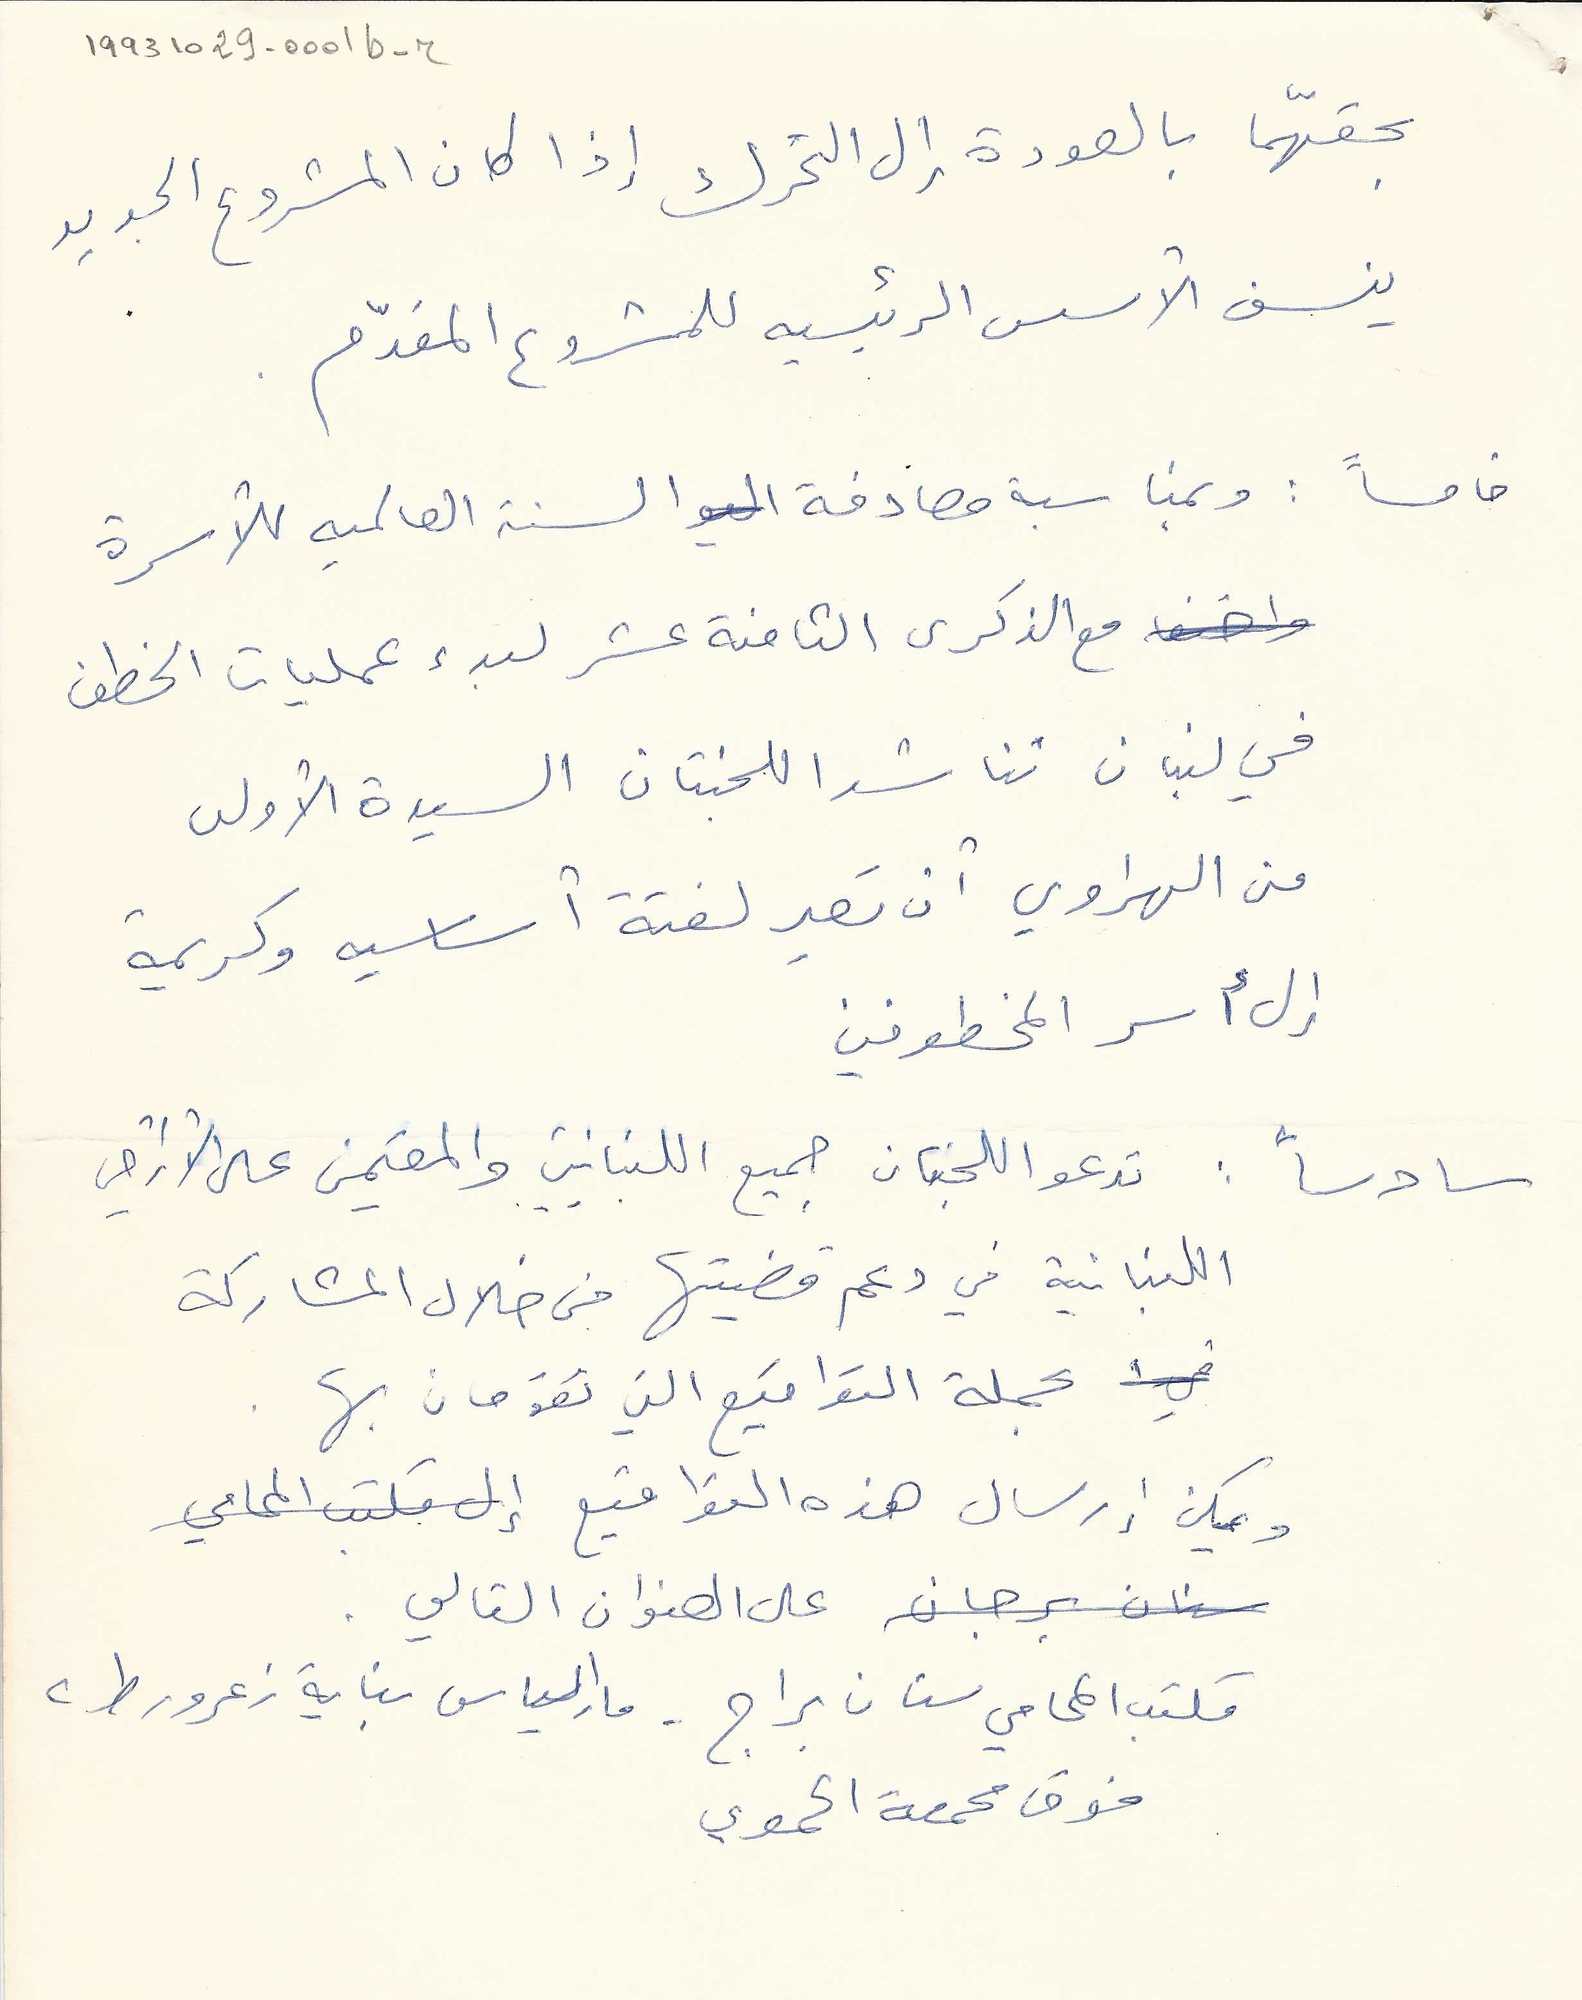 19931029-0001b-r
بحقهّما بالعودة إلى التحرك إذا كان المشروع الجديد
ينسف الأسس الرئيسيه للمشروع المقدّم .
خامساً : وبمناسبة مصادفة السنة العالميه للأسرة
مع الذكرى الثامنة عشر لبدء عمليات الخطف
في لبنان تناشد اللجنتان السيدة الأولى
منى الهراوي أن تعير لفتة أساسيه وكريمة
إلى أسر المخطوفين
سادساً : تدعو اللجنتان جميع اللبنانيين والمقيمين على الأراضي
اللبنانية في دعم قضيتها من خلال المشاركة
بحملة التواقيع التي تقومان بها .
ويمكن إرسال هذه التواقيع إلى مكتب المحامي
سنان برجان على العنوان التالي .
مكتب المحامي سنان براج - مار الياس بناية زعرور ط ٢
فوق محمصة الحموي